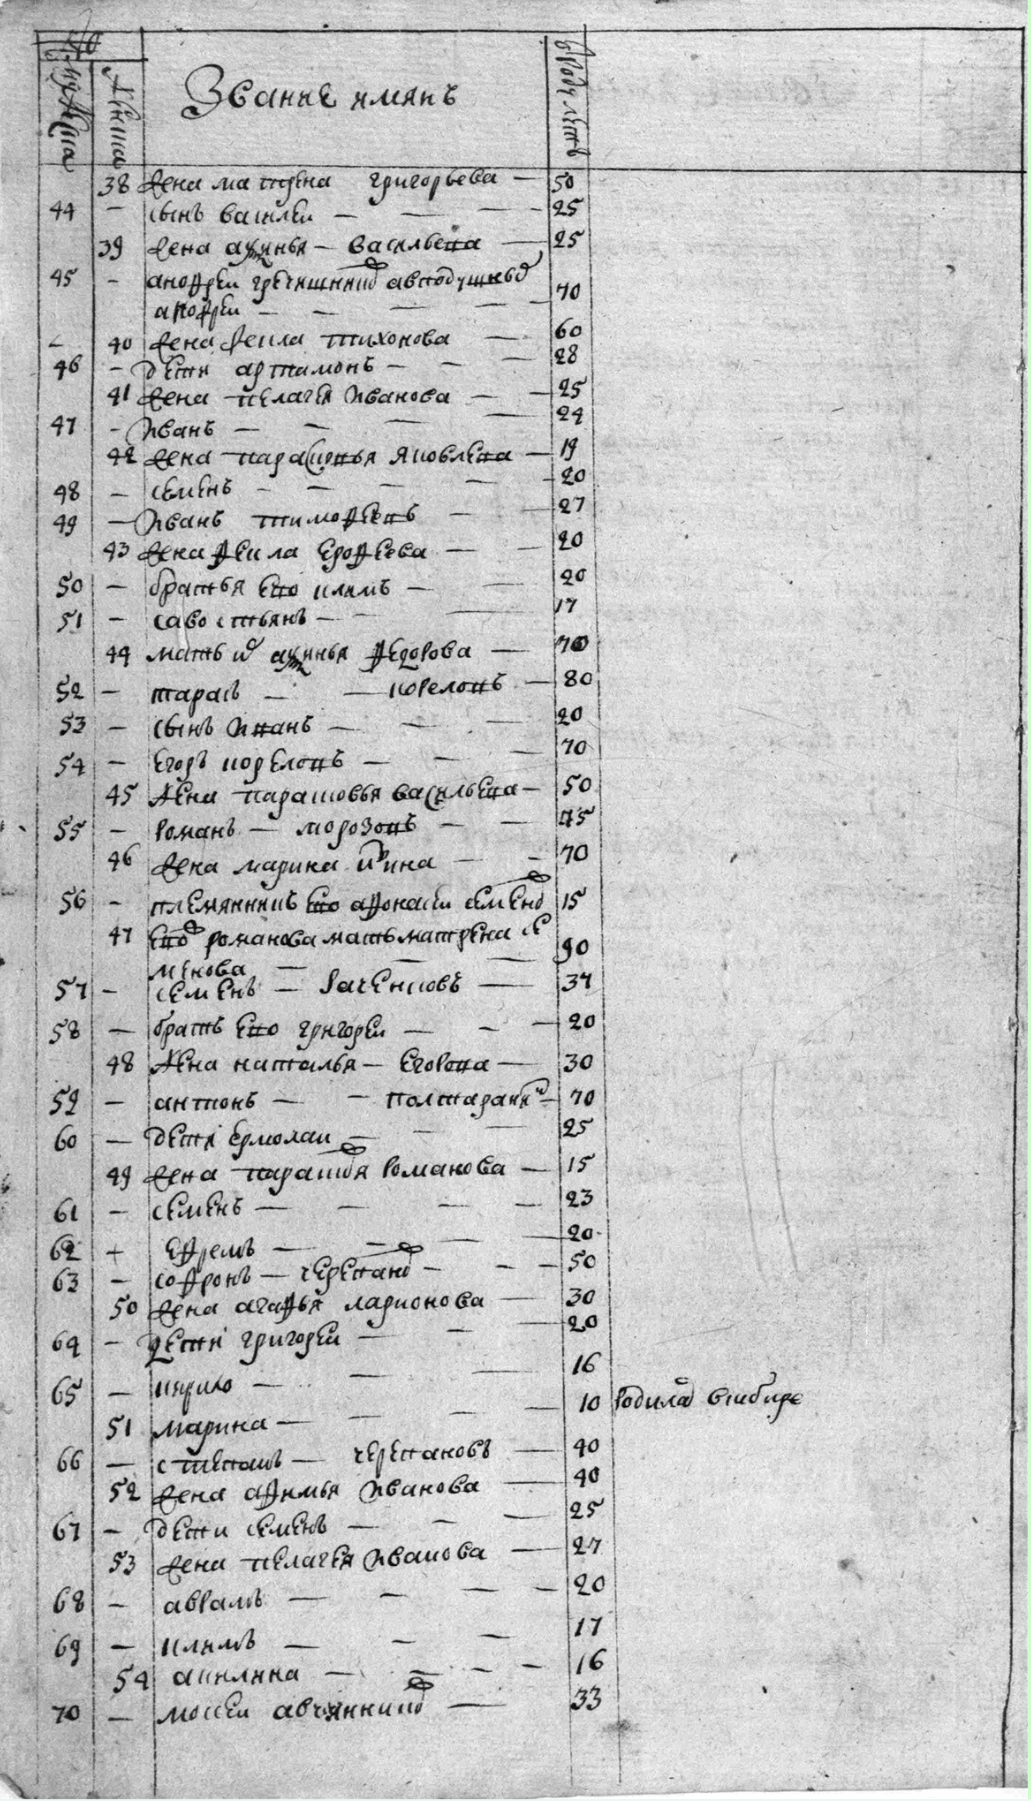 Звание имянъ
38 жена матрена григорьева — 50
44 — сынъ василеи — 25
39 жена аксинья — васильева — 25
45 — андреи гречишник
андреи — 70
40 жена фекла тихонова — 60
46 — дети артамонъ — 28
41 жена пелагея иванова — 25
47 — иванъ — 24
42 жена парасковья яковлева — 19
48 — семенъ — 20
49 — иванъ тимофеевъ — 27
43 жена фекла ерофеева — 20
50 — братья ево климъ — 20
51 — савостьянъ — 17
44 мать их аксинья федорова — 70
52 — тарасъ — кореловъ — 80
53 — сынъ иванъ — 20
54 — егоръ кореловъ — 70
45 жена парасковья васильева — 50
55 — романъ — морозовъ — 75
46 жена марина — 70
56 — племянникъ ево афонасеи семенов 15
47 ево романова мать матрена се
менова — 90
57 — семенъ — 37
58 — братъ ево григореи — 20
48 жена наталья — егорова — 30
59 — антонъ — полтаранин — 70
60 — дети ермолаи — 25
49 жена парасковя романова — 15
61 — семенъ — 23
62 + ефремъ — 20
63 — софронъ — черепанов — 50
50 жена агафья ларионова — 30
64 — дети григореи — 20
65 — кирило — 16
51 марина — 10 родилас всибире
66 — степанъ — черепановъ — 40
52 жена афимья иванова — 40
67 — дети семенъ — 25
53 жена пелагея иванова — 27
68 — аврамъ — 20
69 — климъ — 17
54 акилина — 16
70 — мосеи овчинников — 33